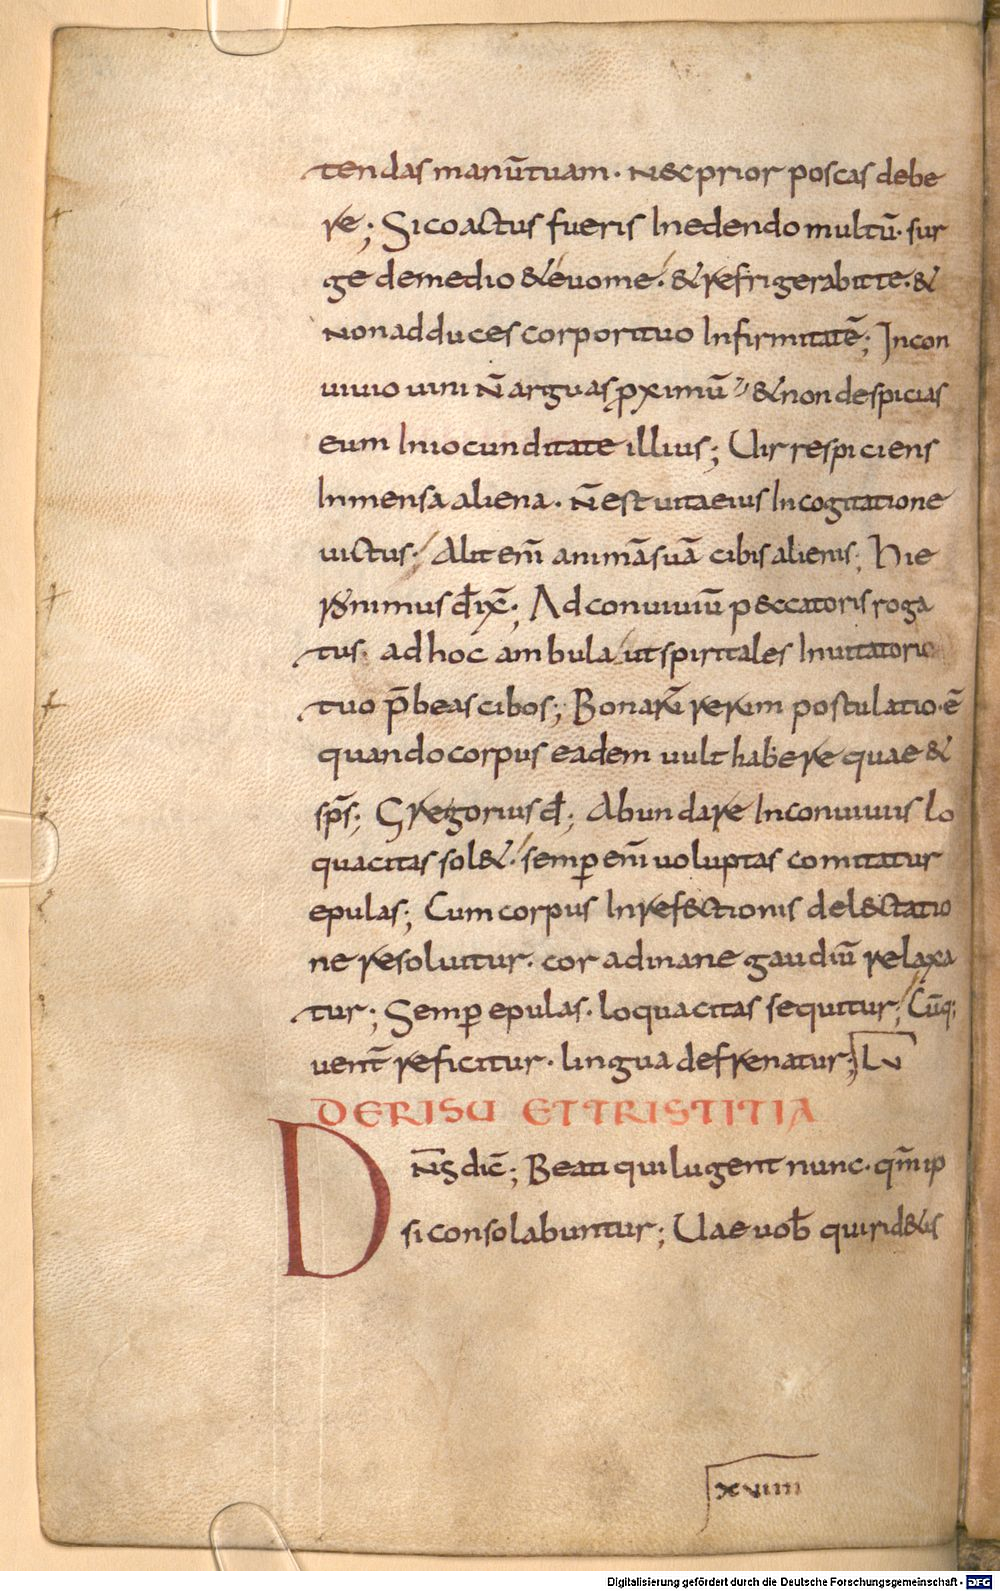 tendas manū tuam · nec prior poscas debe
re; Si coactus fueris In edendo multū · sur
ge de medio & euome · & refrigerabit te · &
non adduces corpori tuo Infirmitatē; In con
uiuio uini n̄ arguas proximū & non despicias
eum In iocunditate illius; Uir respiciens
In mensa aliena · n̄ est uita eius In cogitatione
uictus · Alit eni̅ animā suā cibis alienis; Hie
ronimus dixī; Ad conuiuiū peccatoris roga
tus · ad hoc ambula ut spiritales Inuitatorio
tuo p̄beas cibos; Bonarū rerum postulatio · ē
quando corpus eadem uult habere quae &
sp̄s; Gregorius đ; Abundare In conuiuiis lo
quacitas sol& · semꝑ eni̅ uoluptas comitatur
epulas; Cum corpus In refectionis delectatio
ne resoluitur · cor ad inane gaudiū relaxa
tur; Semꝑ epulas · loquacitas sequitur; Cūq;
uent̄ reficitur · lingua defrenatur; LV
DE RISU ET TRISTITIA
Dn̄s dic̄; Beati qui lugent nunc · qm̄ ip
si consolabuntur; Uae uob̄ qui rid&is
XVIIII
Digitalisierung gefördert durch die Deutsche Forschungsgemeinschaft - DFG